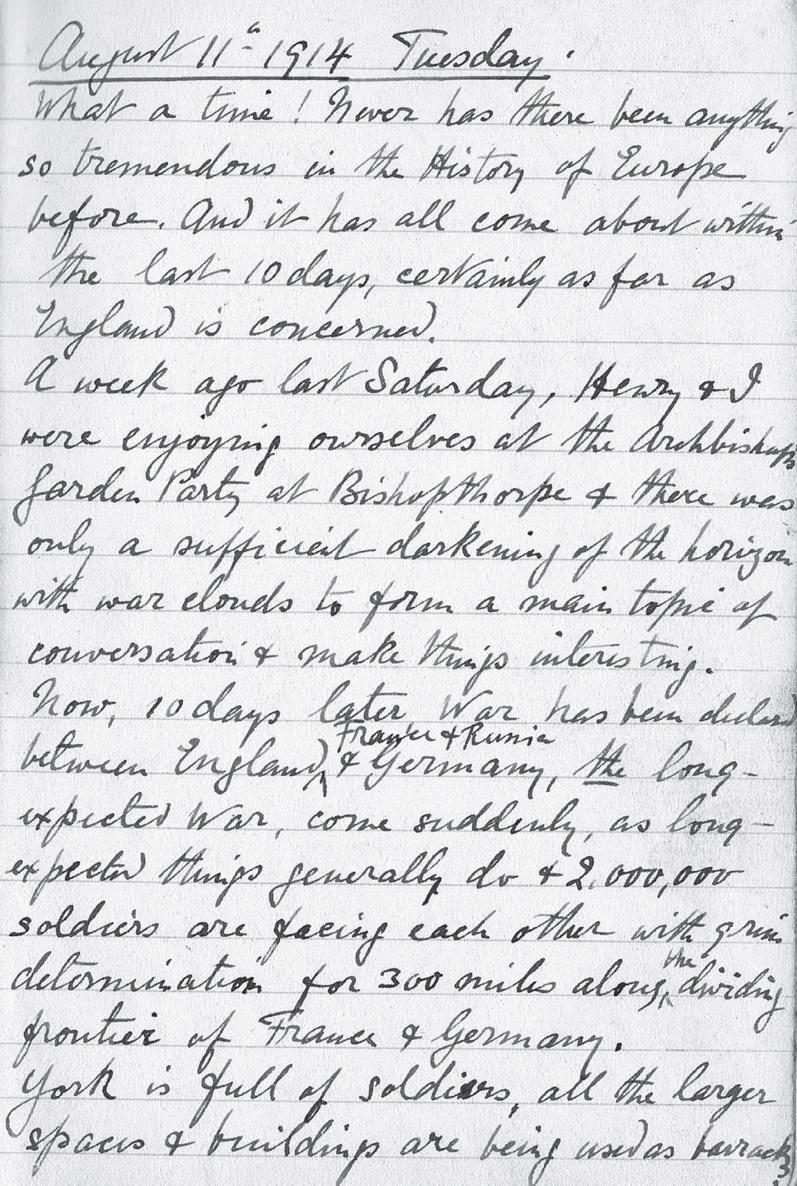 August 11th 1914 Tuesday.
What a time! Never has there been anything
so tremendous in the History of Europe
before. And it has all come about within
the last 10 days, certainly as far as
England is concerned.
A week ago last Saturday, Henry & I
were enjoying ourselves at the Archbishop's
Garden Party at Bishopthorpe & there was
only a sufficient darkening of the horizon
with war clouds to form a main topic of
conversation & make things interesting.
Now, 10 days later War has been declared
France & Russia
between England, & Germany, the long-
expected War, come suddenly, as long-
expected things generally do & 2,000,000
soldiers are facing each other with grim
determination for 300 miles along the dividing
frontier of France & Germany.
York is full of soldiers, all the larger
spaces & buildings are being used as barracks